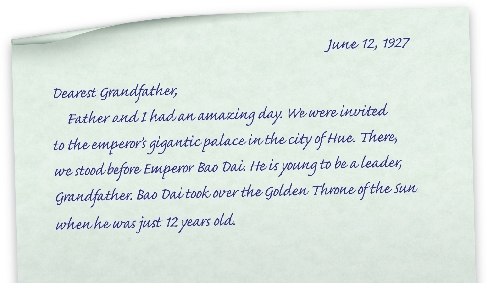 June 12, 1927
Dearest Grandfather,
Father and I had an amazing day. We were invited
to the emperor's gigantic palace in the city of Hue. There,
we stood before Emperor Bao Dai. He is young to be a leader,
Grandfather. Bao Dai took over the Golden Throne of the Sun
when he was just 12 years old.